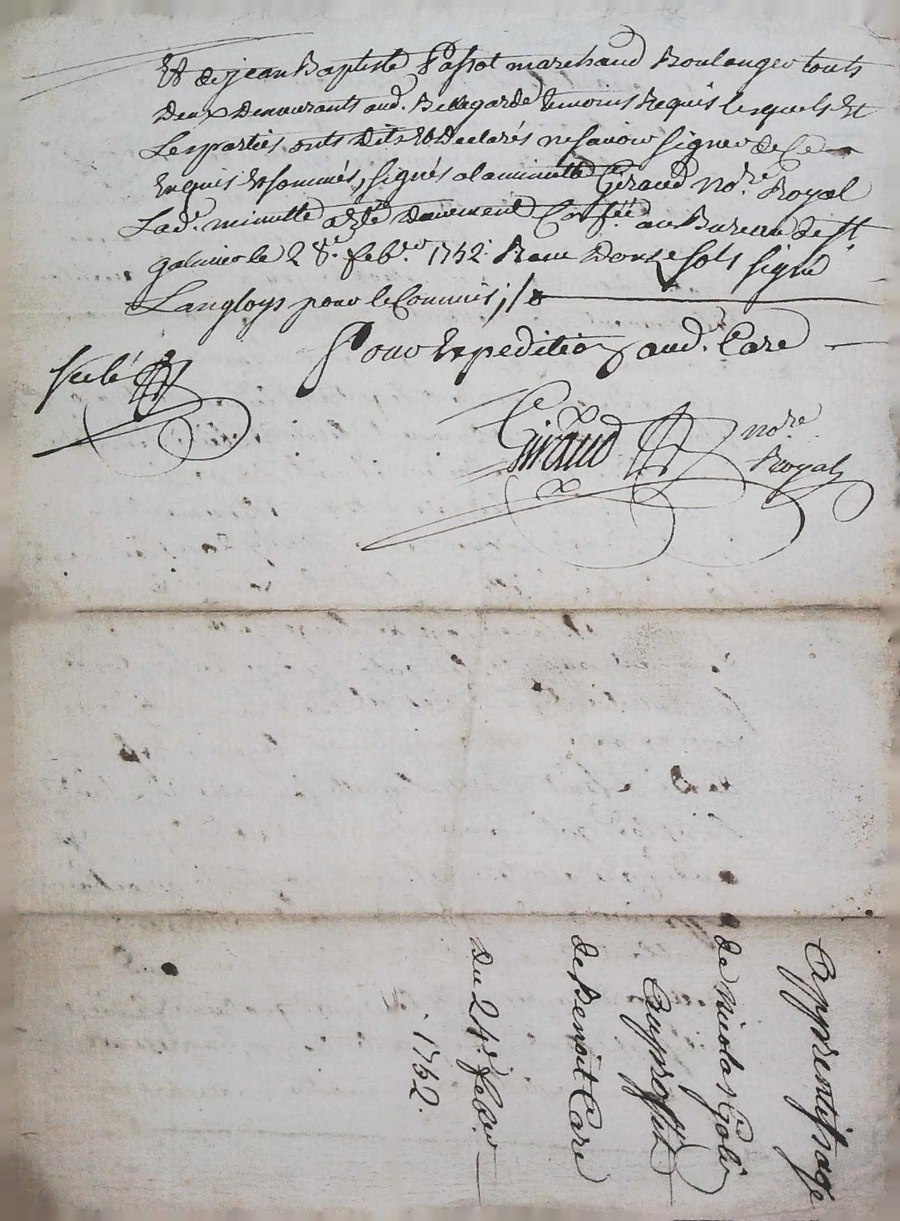 Et de jean Baptiste Passot marchand Boulanger touts
Deux Demeurants aud. Bellegarde temoins Requis lesquels Et
Les parties onts Dits Et Declarés ne savoir signer de Ce
Enquis Et sommés, signés a la minutte Giraud No.re Royal
Lad.e minutte a Eté Duement Con.ée au Bureau de St.
galmier le 28.e feb.er 1752. Reçu Douse sols signé
Langloys pour le Commis; /.
Pour Expedition aud. Caré
scelé
Giraud nore
Royal
Apprentissage
de Nicolas
Au proffit
de Benoit Caré
Du 24e. feber
1752.